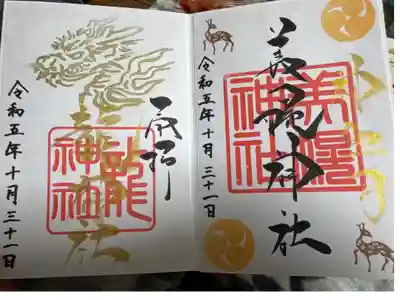 美幌神社
美幌
神社
令和五年十月三十一日
奉拝
龍
神社
令和五年十月三十一日